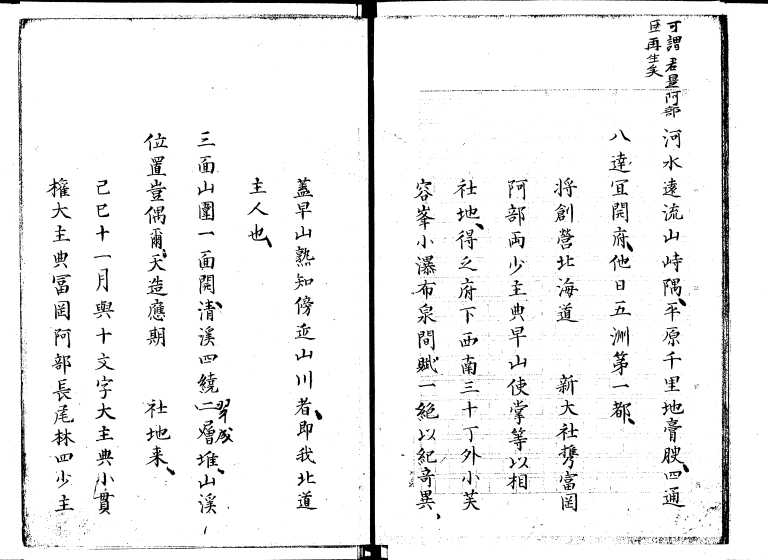 可謂君是阿部
臣再生矣
河水遠流山峙隅平原千里地膏腴四通
八達宜開府他日五洲第一都
將創營北海道 新大社携富岡
阿部両少主典早山使掌等以相
社地得之府下西南三十丁外小芙
容峯小瀑布泉間賦一絶以紀奇異
蓋早山熟知傍近山川者即我北道
主人也
三面山圍一面開清溪四繞二層堆山溪
翠成
位置豈偶爾天造應期 社地来
己巳十一月與十文字大主典小貫
權大主典冨岡阿部長尾林四少主